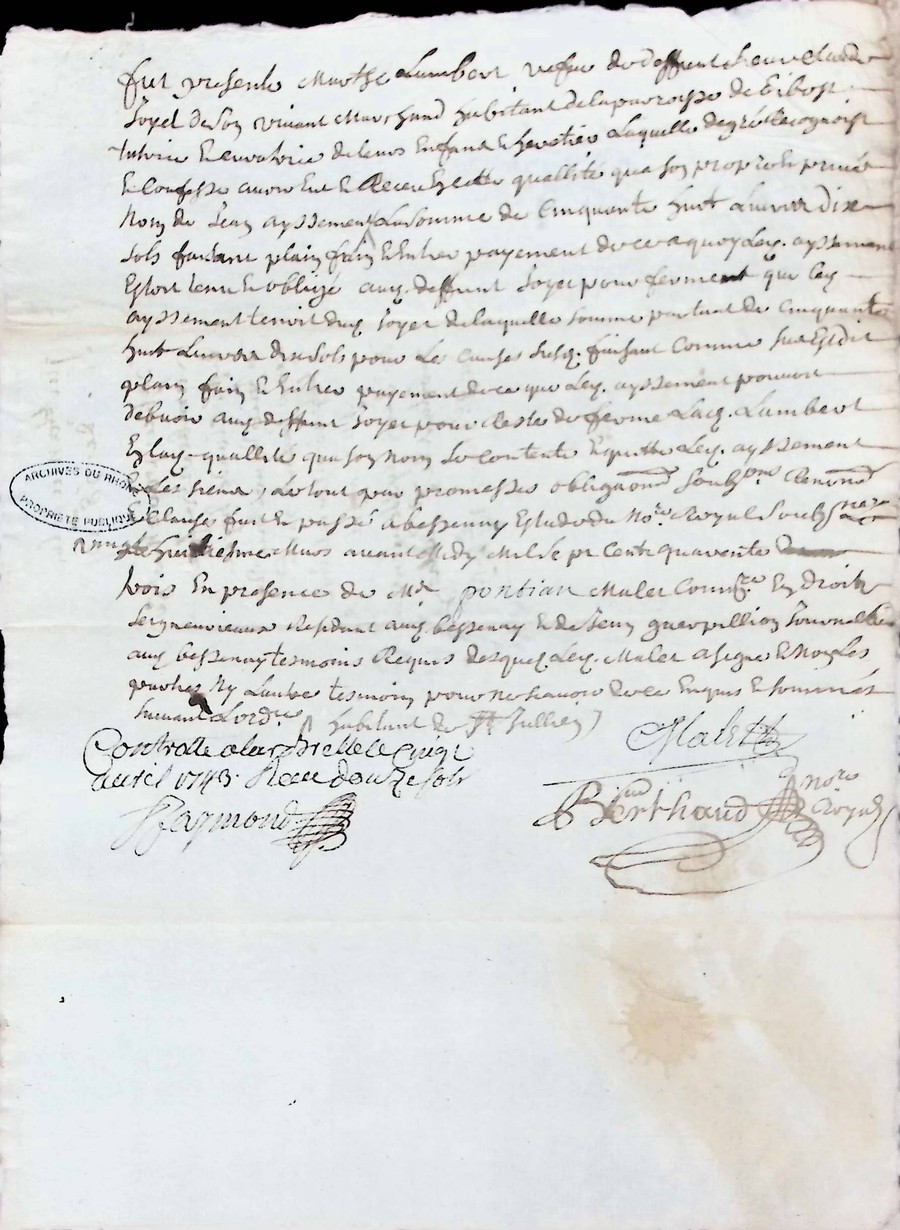 fut presente Marthe Lambert vefve de deffunt
Joyet de son vivant Marchand habitant de la parroisse de Bibost
tutrice et curatrice de leurs enfans et heretiers Laquelle de gré Recognoist
et confesse avoir eut et Receu Esditte quallité que son propre et privée
Nom de Jean ayssement La somme de Cinquante huit Livres dix
sols faisant plain fain et Entier payement de ce a quoy Ley. ayssement
Estoit tenu et obligé auy. deffunt Joyet pour ferme que ley
ayssement tenoit duy Joyet de laquelle somme partant de Cinquante
huit Livres dix sols pour Les Causes Susy. faisant Comme Sus Est dit
plain fain et Entier payement de ce que Ley. ayssement pouvoit
debvoir auy deffunt Joyet pour Reste de ferme Lay. Lambert
Esday. quallité que son Nom Se contente Equitte Ley. ayssement
Et Les siens, Le tout par promesses obligaons Soubmons Renons
et Clauses fait et passé a bessenay Estude du Nore Royal Soubsne
vingt huitiesme Mars avant Midy Mil Sept Cents quarente
trois En presence de Me pontian Malet Commre En droits
Seigneuriaux Residant auy bessenay et de Jean guerpillion Journallier
auy bessenay tesmoins Requis desquels Ley. Malet a signé et Non Les
parties Ny Lautre tesmoin pour ne scavoir de ce Enquis et sommés
suivant Lordce ( habitant de St Jullien )
Controllé a larbrelle le cinqe
avril 1743. Receu douze sols
Raymond
Malet
Berthaud nore Royal
ARCHIVES DU RHÔNE
PROPRIETE PUBLIQUE